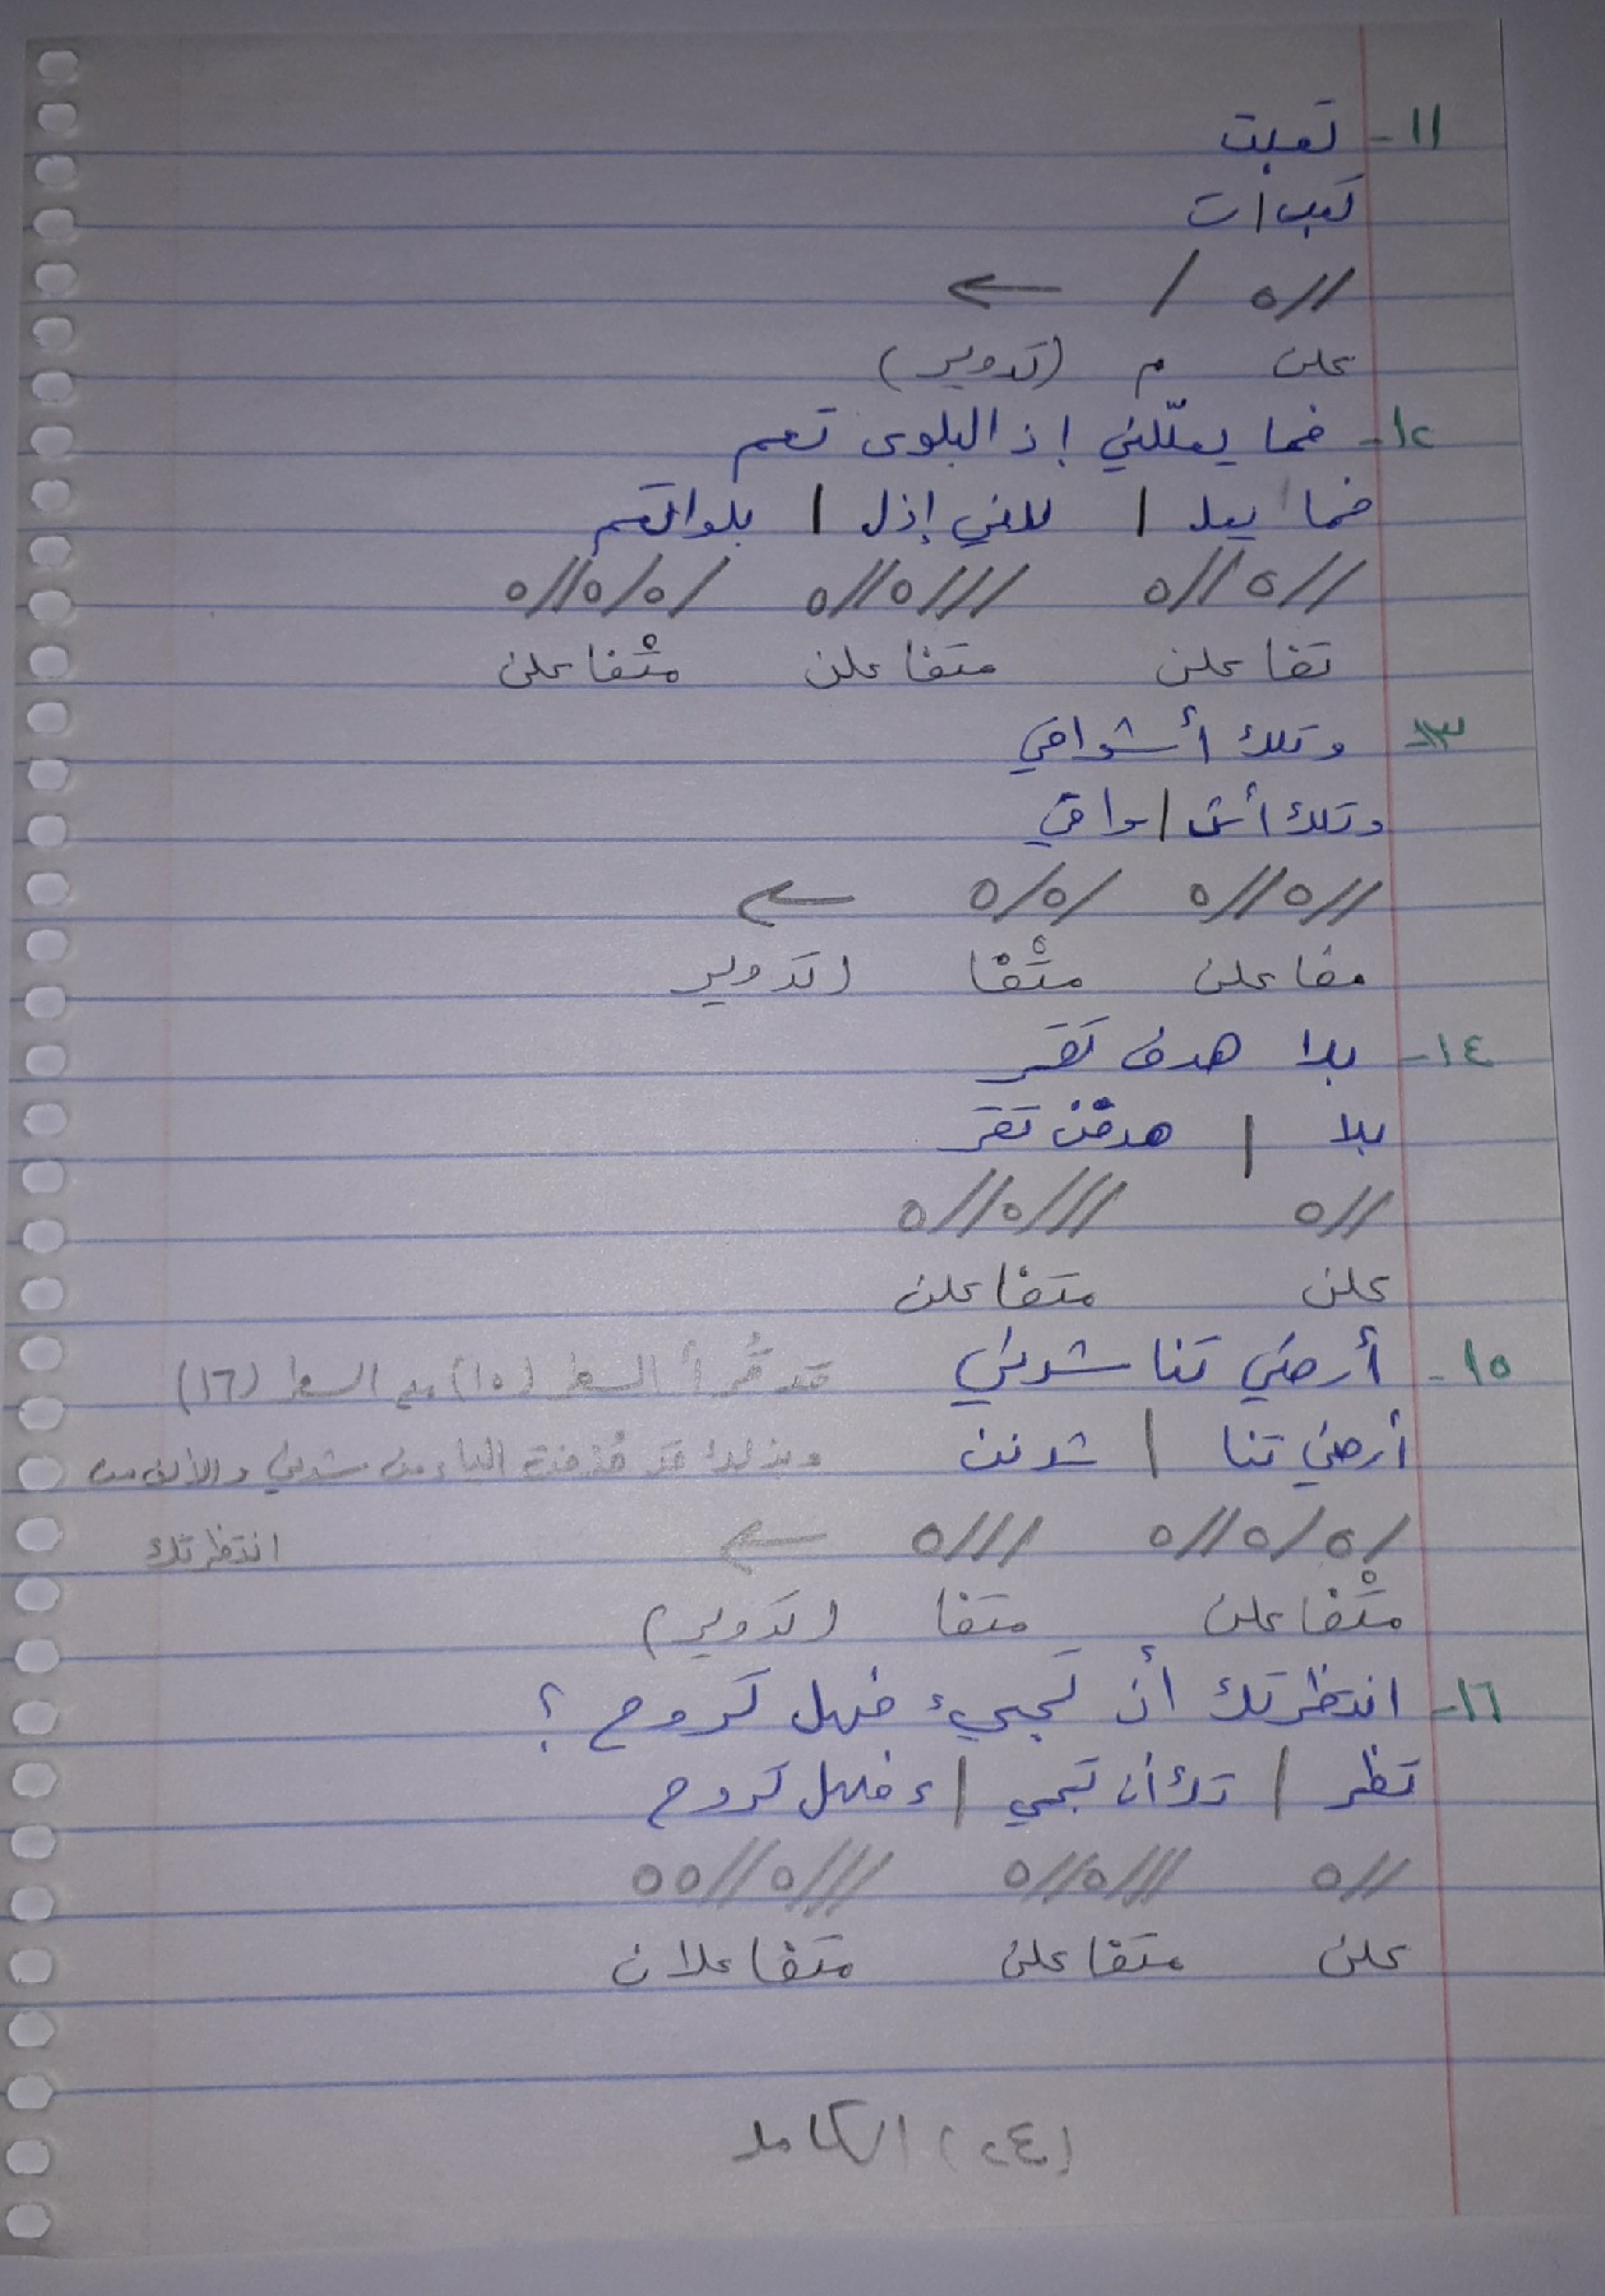 ١١- تعبت
تعب | ت
//ه / ←
علن م (تدوير)
١٢- فما يعلّلني إذ البلوى تعم
فما يعل | للني إذل | بلوا تعم
//ه//ه ///ه//ه /ه/ه//ه
تفاعلن متفاعلن متْفاعلن
١٣- وتلك أشواقي
وتلك أش | واقي
//ه//ه /ه/ه ←
مفاعلن متْفا (تدوير
١٤- بلا هدف تقر
بلا | هدفن تقر
//ه ///ه//ه
علن متفاعلن
١٥- أرضي تناشدني قد تُقرأ السطر (١٥) مع السطر (١٦)
أرضي تنا | شدنن وبذلك قد حُذفت الياء من شدني والألف من
/ه/ه//ه ///ه ← انتظرتك
متْفاعلن متفا (تدوير)
١٦- انتظرتك أن تجيء فهل تروح ؟
تظر | تك أن تجي | ء فهل تروح
//ه ///ه//ه ///ه//ه ه
علن متفاعلن متفاعلان
(٢٤) الكامل